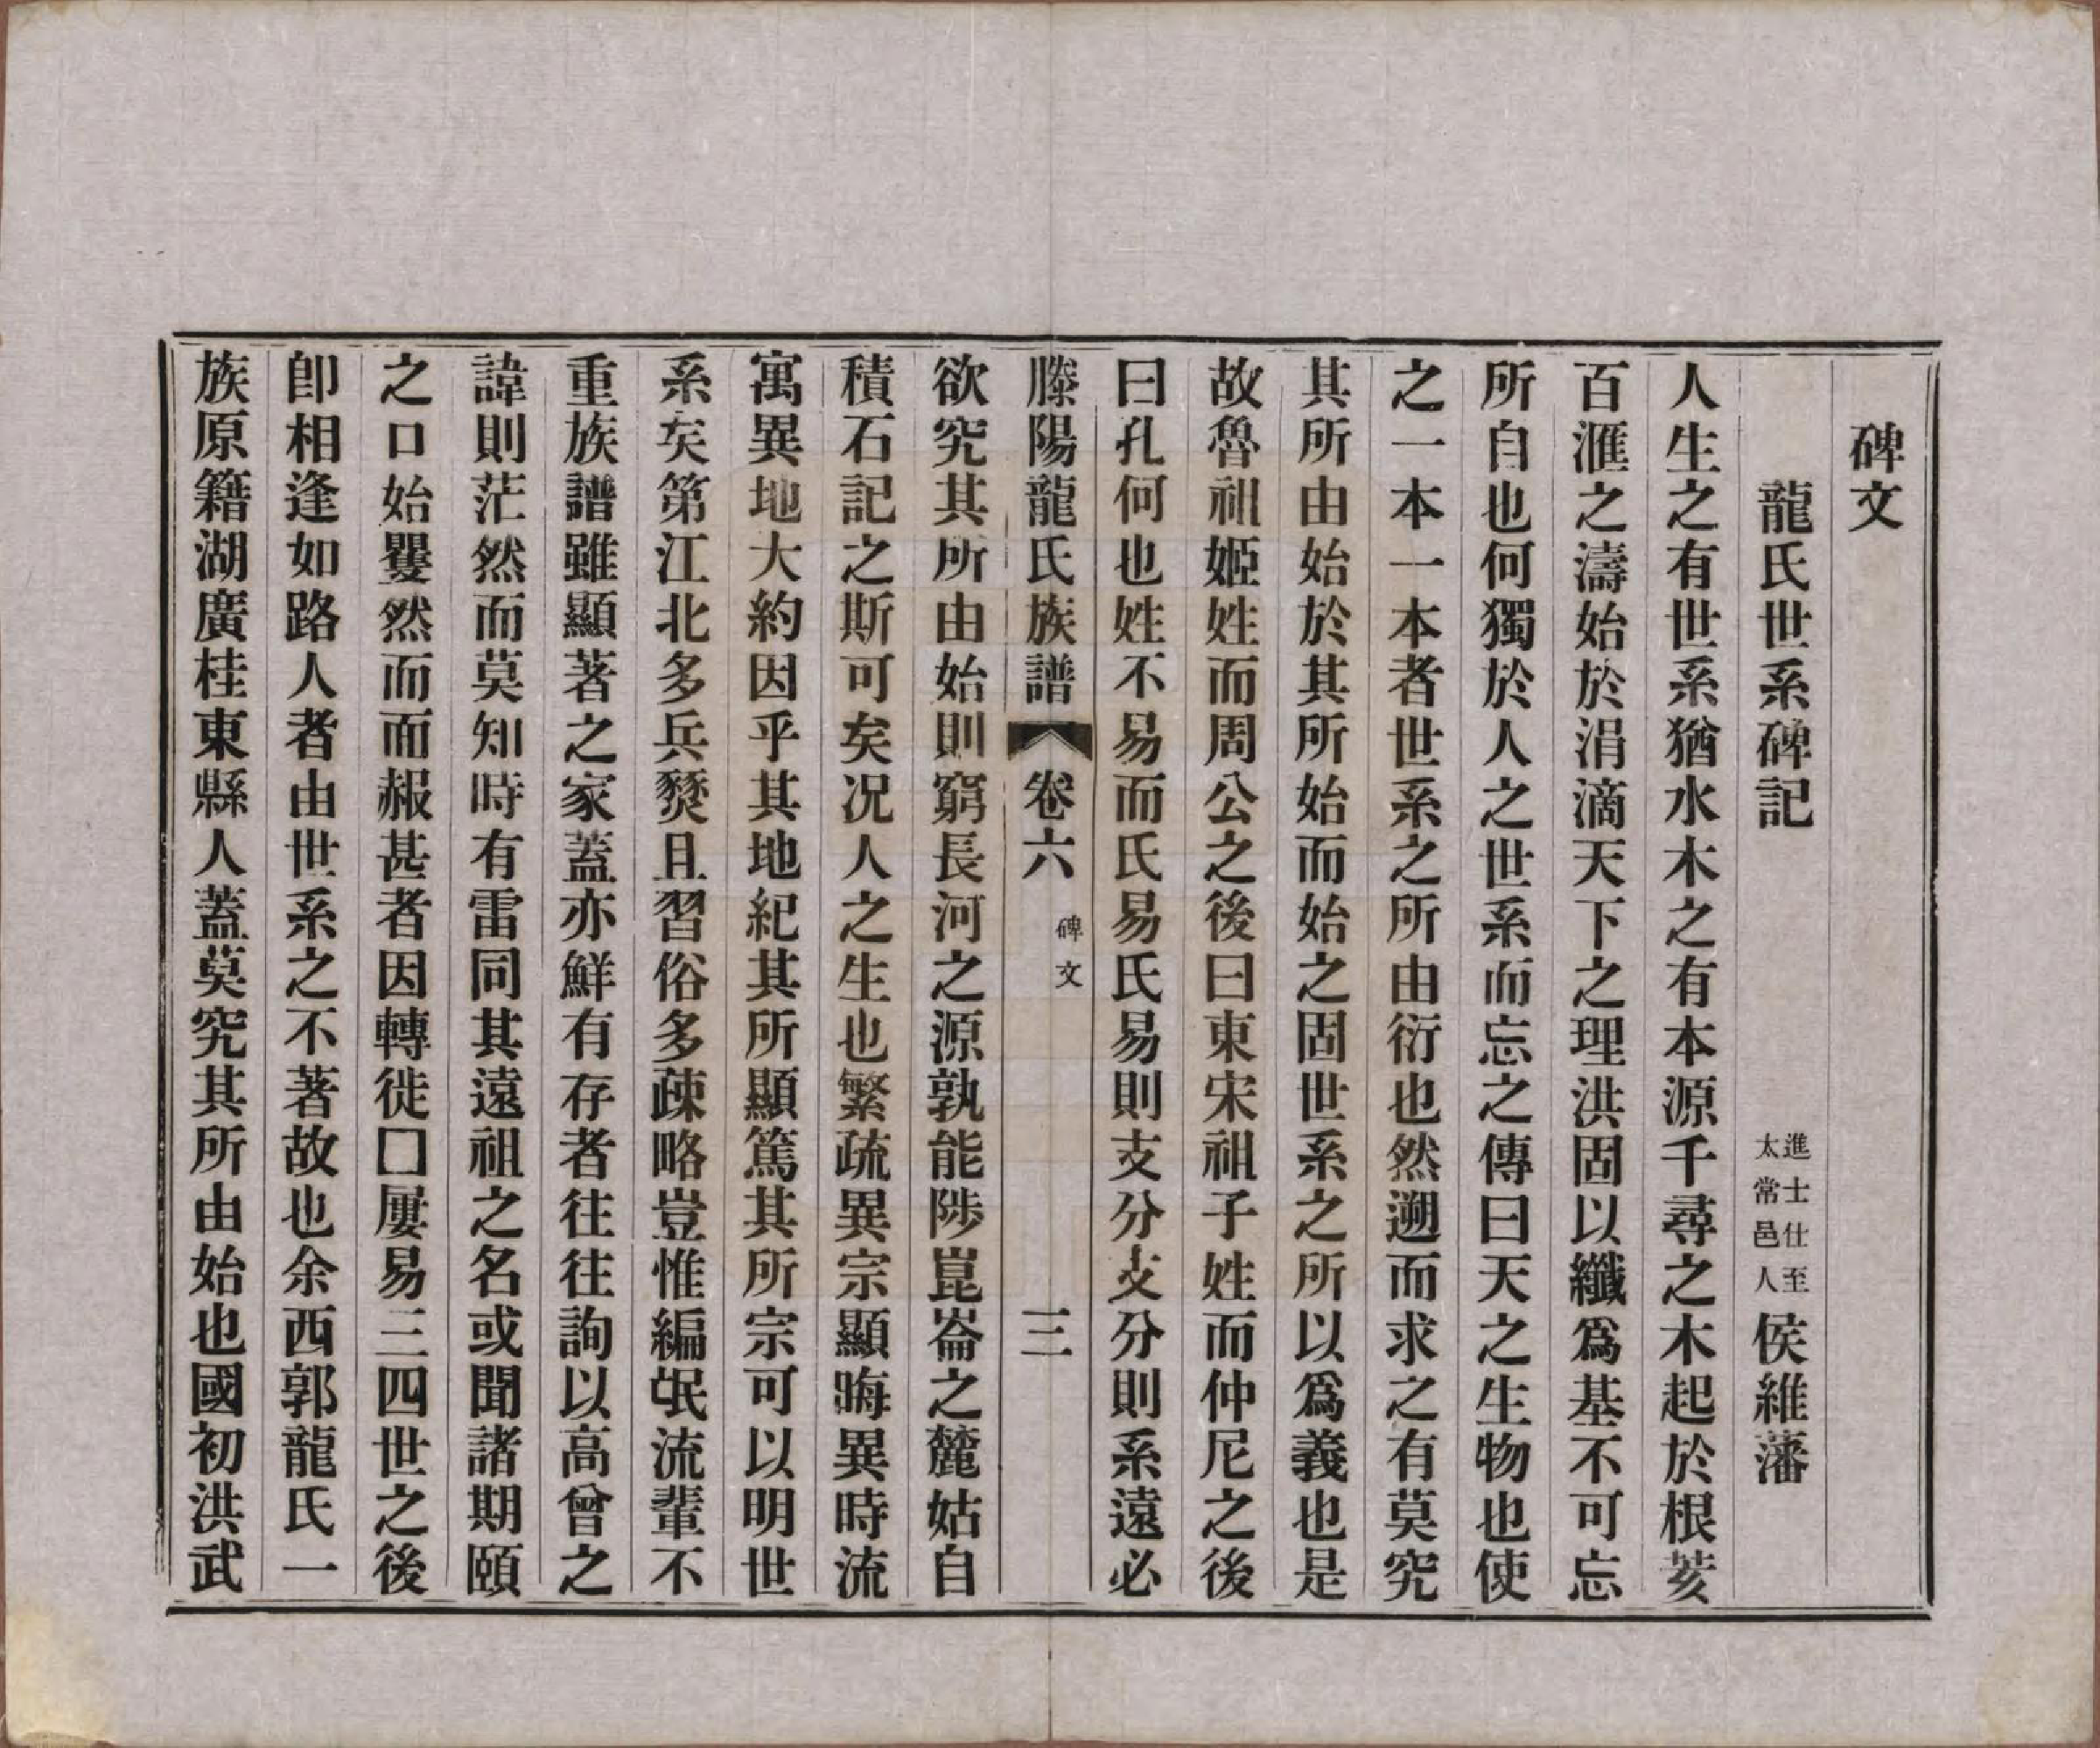 碑文
龍氏世系碑記 進士仕至太常邑人 侯維藩
人生之有世系猶水木之有本源千尋之木起於根荄
百滙之濤始於涓滴天下之理洪固以纖爲基不可忘
所自也何獨於人之世系而忘之傳曰天之生物也使
之一本一本者世系之所由衍也然遡而求之有莫究
其所由始於其所始而始之固世系之所以爲義也是
故魯祖姬姓而周公之後曰東宋祖子姓而仲尼之後
曰孔何也姓不易而氏易氏易則支分支分則系遠必
滕陽龍氏族譜 卷六 碑文 三
欲究其所由始則窮長河之源孰能陟崑崙之麓姑自
積石記之斯可矣况人之生也繁疏異宗顯晦異時流
寓異地大約因乎其地紀其所顯篤其所宗可以明世
系矣第江北多兵燹且習俗多疎略豈惟編氓流輩不
重族譜雖顯著之家蓋亦鮮有存者往往詢以高曾之
諱則茫然而莫知時有雷同其遠祖之名或聞諸期頤
之口始矍然而面赧甚者因轉徙囗屢易三四世之後
卽相逢如路人者由世系之不著故也余西郭龍氏一
族原籍湖廣桂東縣人蓋莫究其所由始也國初洪武